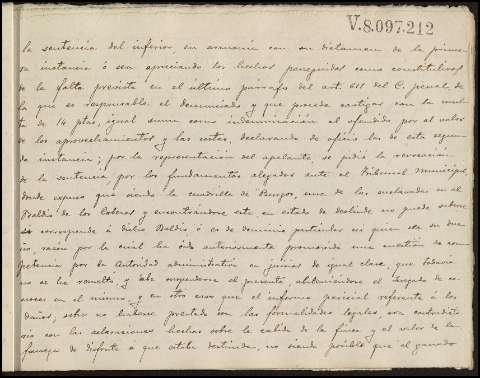 V.8.097.212
la sentencia del inferior, en armonía con su dictamen de la prime-
ra instancia ó sea apreciando los hechos perseguidos como constitutivos
de la falta prevista en el último párrafo del art. 611 del C. penal, de
la que es responsable el denunciado y que procede castigar con la mul-
ta de 14 ptas, igual suma como indemnización al ofendido por el valor
de los aprovechamientos y las costas, declarando de oficio las de esta segun-
da instancia; por la representación del apelante, se pidió la revocación
de la sentencia, por los fundamentos alegados ante el Tribunal municipal,
donde expuso que siendo la cuadrilla de Burgos, una de las enclavadas en el
Baldío de los Coberos y encontrándose este, en estado de deslinde no puede saberse
si corresponde á dicho Baldío, ó es de dominio particular ni quien sea su due-
ño, razón por la cual ha sido anteriormente promovida una cuestión de com-
petencia por la Autoridad administrativa en juicios de igual clase, que todavía
no se ha resuelto, y debe suspenderse el presente absteniéndose el Juzgado de co-
nocer en el mismo; y en otro caso que el informe pericial referente á los
daños, sobre no haberse prestado con las formalidades legales, era contradicto-
rio con las aclaraciones hechas sobre la cabida de la finca y el valor de la
fanega de disfrute á que estaba destinada, no siendo posible que el ganado